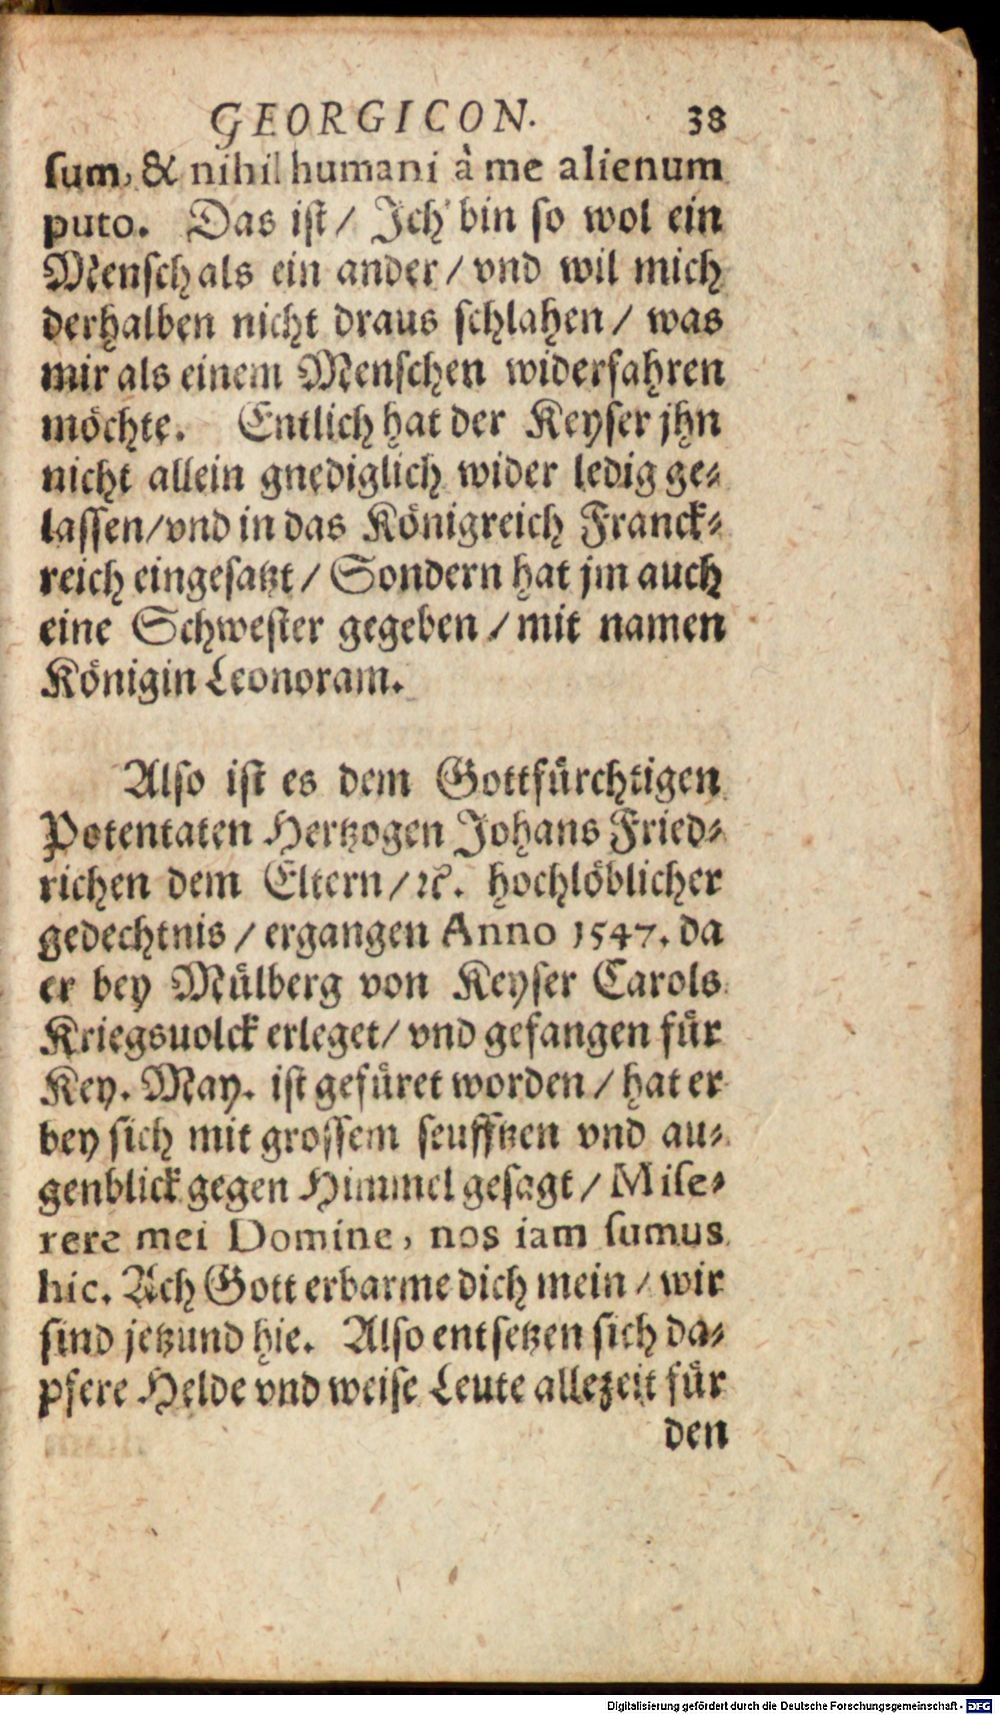 GEORGICON. 38
ſum, & nihil humani à me alienum
puto. Das iſt / Ich bin ſo wol ein
Menſch als ein ander / vnd wil mich
derhalben nicht draus ſchlahen / was
mir als einem Menſchen widerfahren
möchte. Entlich hat der Keyſer jhn
nicht allein gnediglich wider ledig ge⸗
laſſen / vnd in das Königreich Franck⸗
reich eingeſatzt / Sondern hat jm auch
eine Schweſter gegeben / mit namen
Königin Leonoram.
Alſo iſt es dem Gottfürchtigen
Potentaten Hertzogen Johans Fried⸗
richen dem Eltern / ꝛc. hochlöblicher
gedechtnis / ergangen Anno 1547. da
er bey Mülberg von Keyſer Carols
Kriegsuolck erleget / vnd gefangen für
Key. May. iſt gefüret worden / hat er
bey ſich mit groſſem ſeufftzen vnd au⸗
genblick gegen Himmel geſagt / Miſe⸗
rere mei Domine, nos iam ſumus
hic. Ach Gott erbarme dich mein / wir
ſind jetzund hie. Alſo entſetzen ſich da⸗
pfere Helde vnd weiſe Leute allezeit für
den
Digitalisierung gefördert durch die Deutsche Forschungsgemeinschaft - DFG